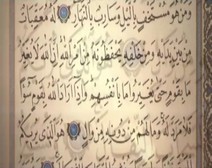 وَمَنْ هُوَ مُسْتَخْفٍ بِاللَّيْلِ وَسَارِبٌ بِالنَّهَارِ لَهُ مُعَقِّبَاتٌ
مِنْ بَيْنِ يَدَيْهِ وَمِنْ خَلْفِهِ يَحْفَظُونَهُ مِنْ أَمْرِ اللَّهِ إِنَّ اللَّهَ لَا يُغَيِّرُ
مَا بِقَوْمٍ حَتَّى يُغَيِّرُوا مَا بِأَنْفُسِهِمْ وَإِذَا أَرَادَ اللَّهُ بِقَوْمٍ سُوءًا
فَلَا مَرَدَّ لَهُ وَمَا لَهُمْ مِنْ دُونِهِ مِنْ وَالٍ هُوَ الَّذِي يُرِيكُمُ